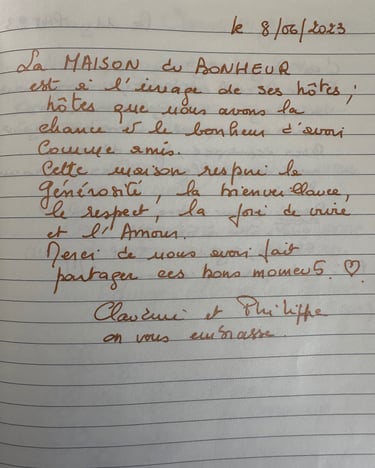 le 8/06/2023
La MAISON du BONHEUR
est à l'image de ses hôtes ;
hôtes que nous avons la
chance & le bonheur d'avoir
comme amis.
Cette maison respire la
Générosité, la bienveillance,
le respect, la joie de vivre
et l'Amour.
Merci de nous avoir fait
partager ces bons moments. ♡
et Philippe
on vous embrasse.